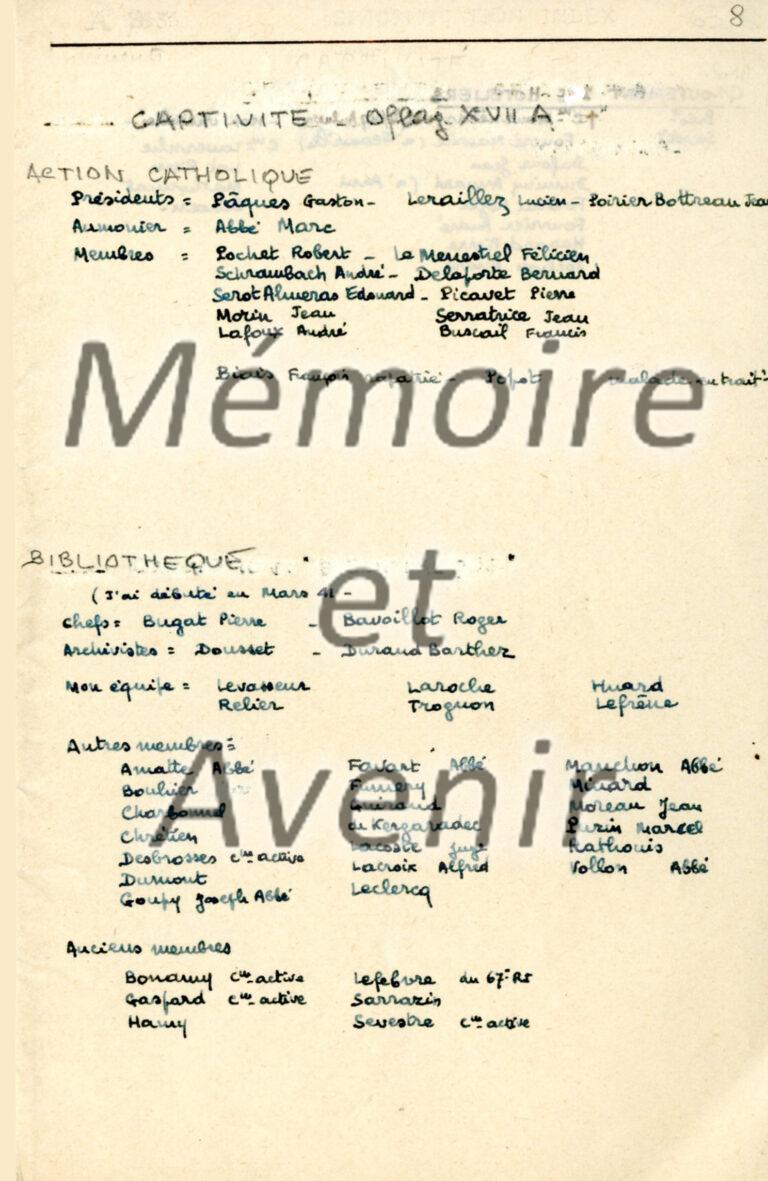 8
CAPTIVITE - Oflag XVII A
ACTION CATHOLIQUE
Présidents = Pâques Gaston - Leraillez Lucien - Poirier Bottreau Jean
Aumonier = Abbé Marc
Membres = Pochet Robert - Le Menestrel Félicien
Schrambach André - Delaporte Bernard
Serot Almeras Edouard - Picavet Pierre
Morin Jean Serratrice Jean
Lafoux André Buscail Francis
Biais François rapatrié - Popot malade en trait^t
Mémoire
BIBLIOTHEQUE
et
(J'ai débuté en Mars 41 -
Chefs = Bugat Pierre - Bavoillot Roger
Archivistes = Dousset - Durand Barthez
Mon équipe = Levasseur Laroche Huard
Relier Trognon Lefrêne
Autres membres =
Avenir
Amatte Abbé Favart Abbé Manchon Abbé
Bouhier Fumery Minard
Charbonnel Guiraud Moreau Jean
Chrétien de Kergaradec Puzin Marcel
Desbrosses c^ne active Lacoste Juge Rathouis
Dumont Lacroix Alfred Vollon Abbé
Goupy Joseph Abbé Leclercq
Anciens membres
Bonamy c^ne active Lefebvre du 67^e RI
Gaspard c^ne active Sarrazin
Hamy Sevestre c^ne active